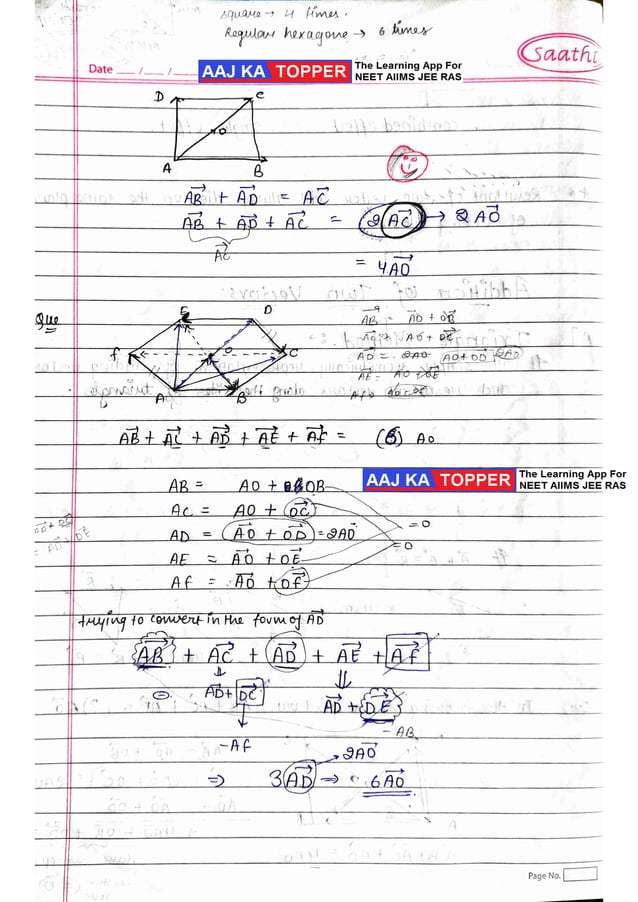 square → 4 times.
Regular hexagone → 6 times
Saathi
Date __/__/__
AAJ KA TOPPER The Learning App For NEET AIIMS JEE RAS
D C
O
A B
AB + AD = AC
AB + AD + AC = 2AC → 2AO
AC
= 4AO
Que
E D
F O C
A B
AB = AO + OB
AC = AO + OC
AD = 2AO AO + OD 2AO
AE = AO + OE
AB + AC + AD + AE + Af = (6) AO
AAJ KA TOPPER The Learning App For NEET AIIMS JEE RAS
AB = AO + OB
AC = AO + OC
AD = AO + OD = 2AO = 0
AE = AO + OE = 0
Af = AO + Of
trying to convert in the form of AD
AB + AC + AD + AE + Af
AD + DC AD + DE
-Af -AB
2AO
⇒ 3AD → 6AO
Page No.